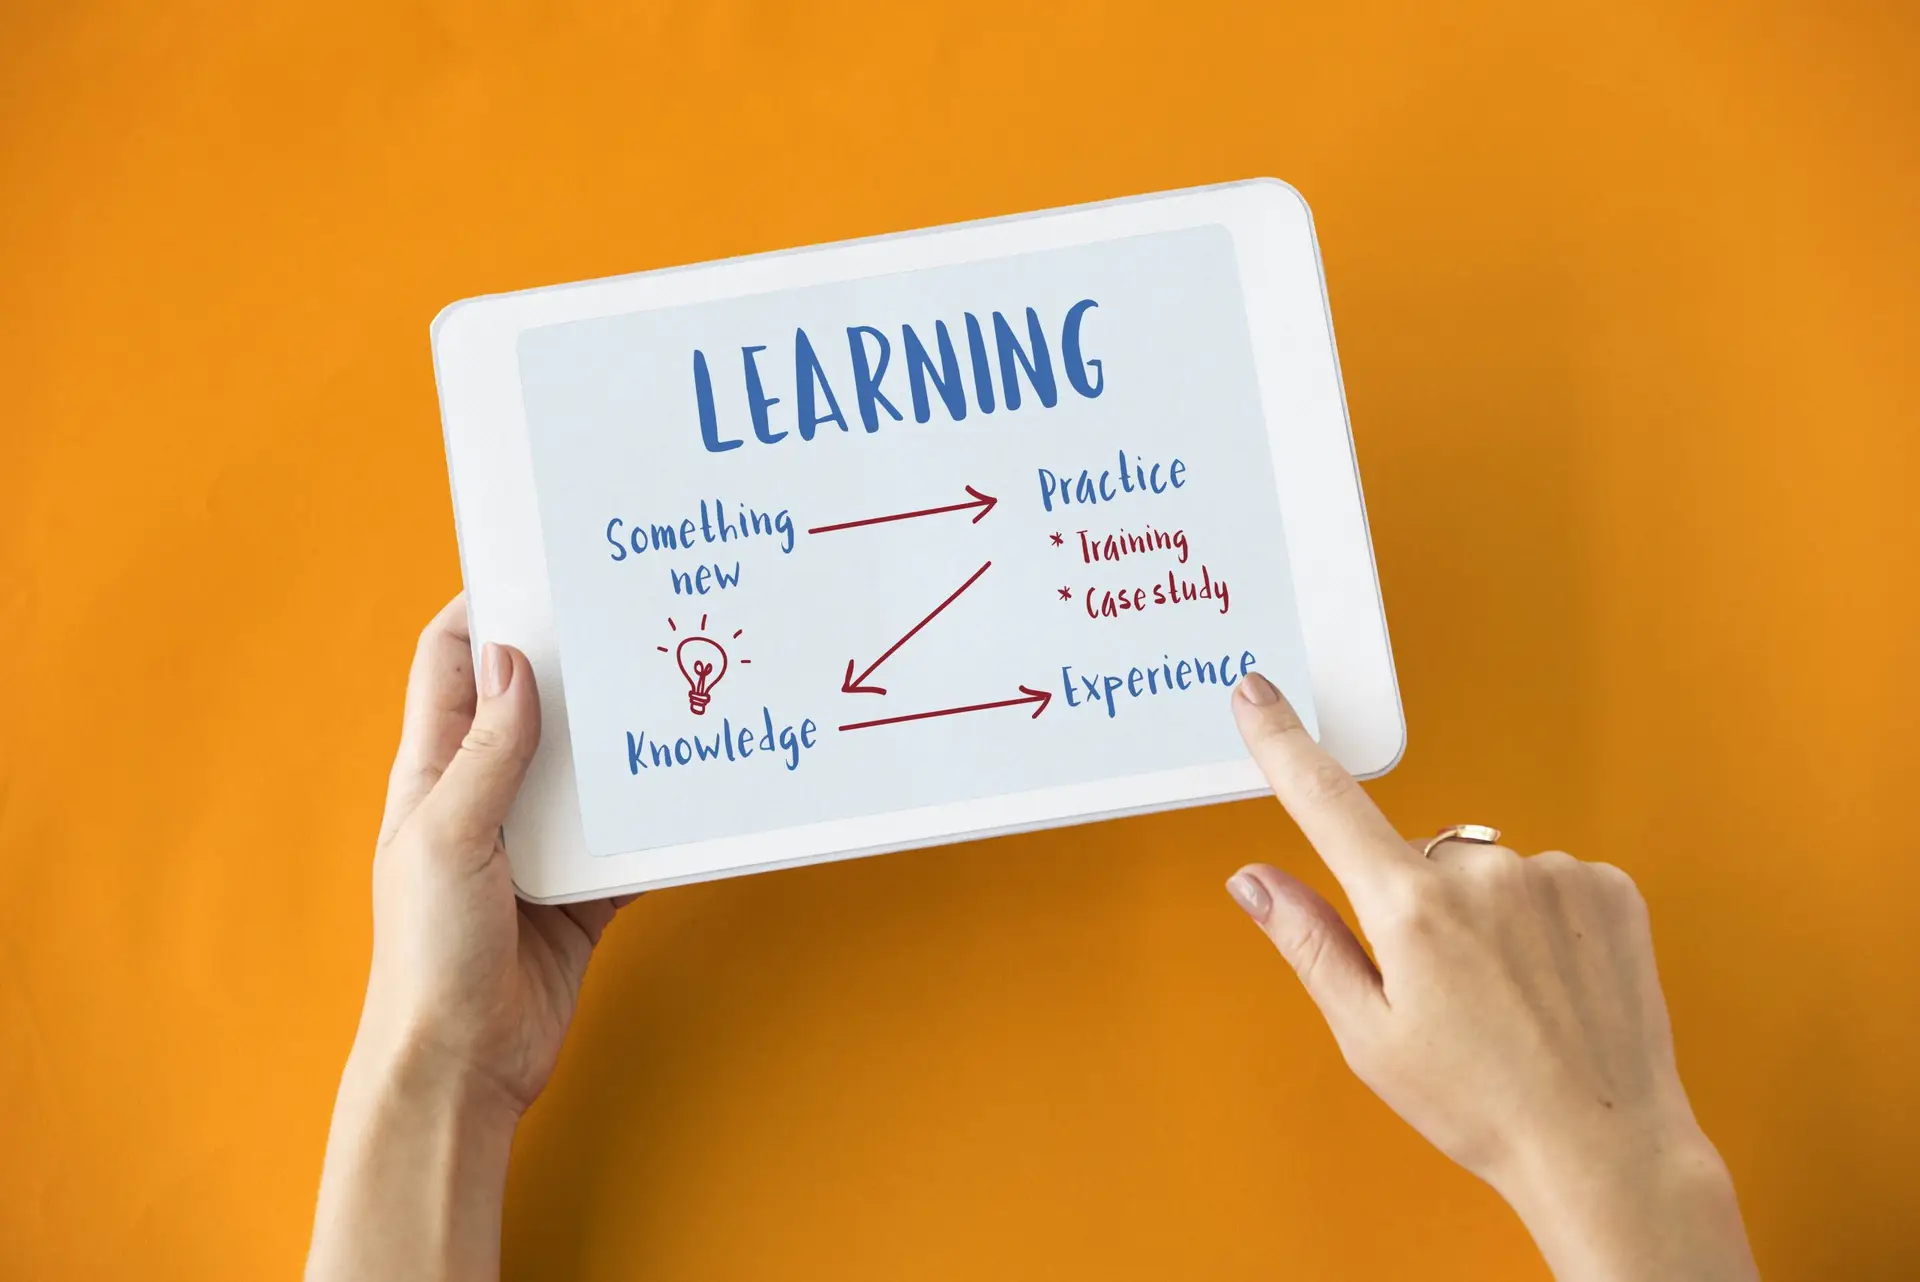 LEARNING
Something
new
Practice
* Training
* Case study
Knowledge
Experience